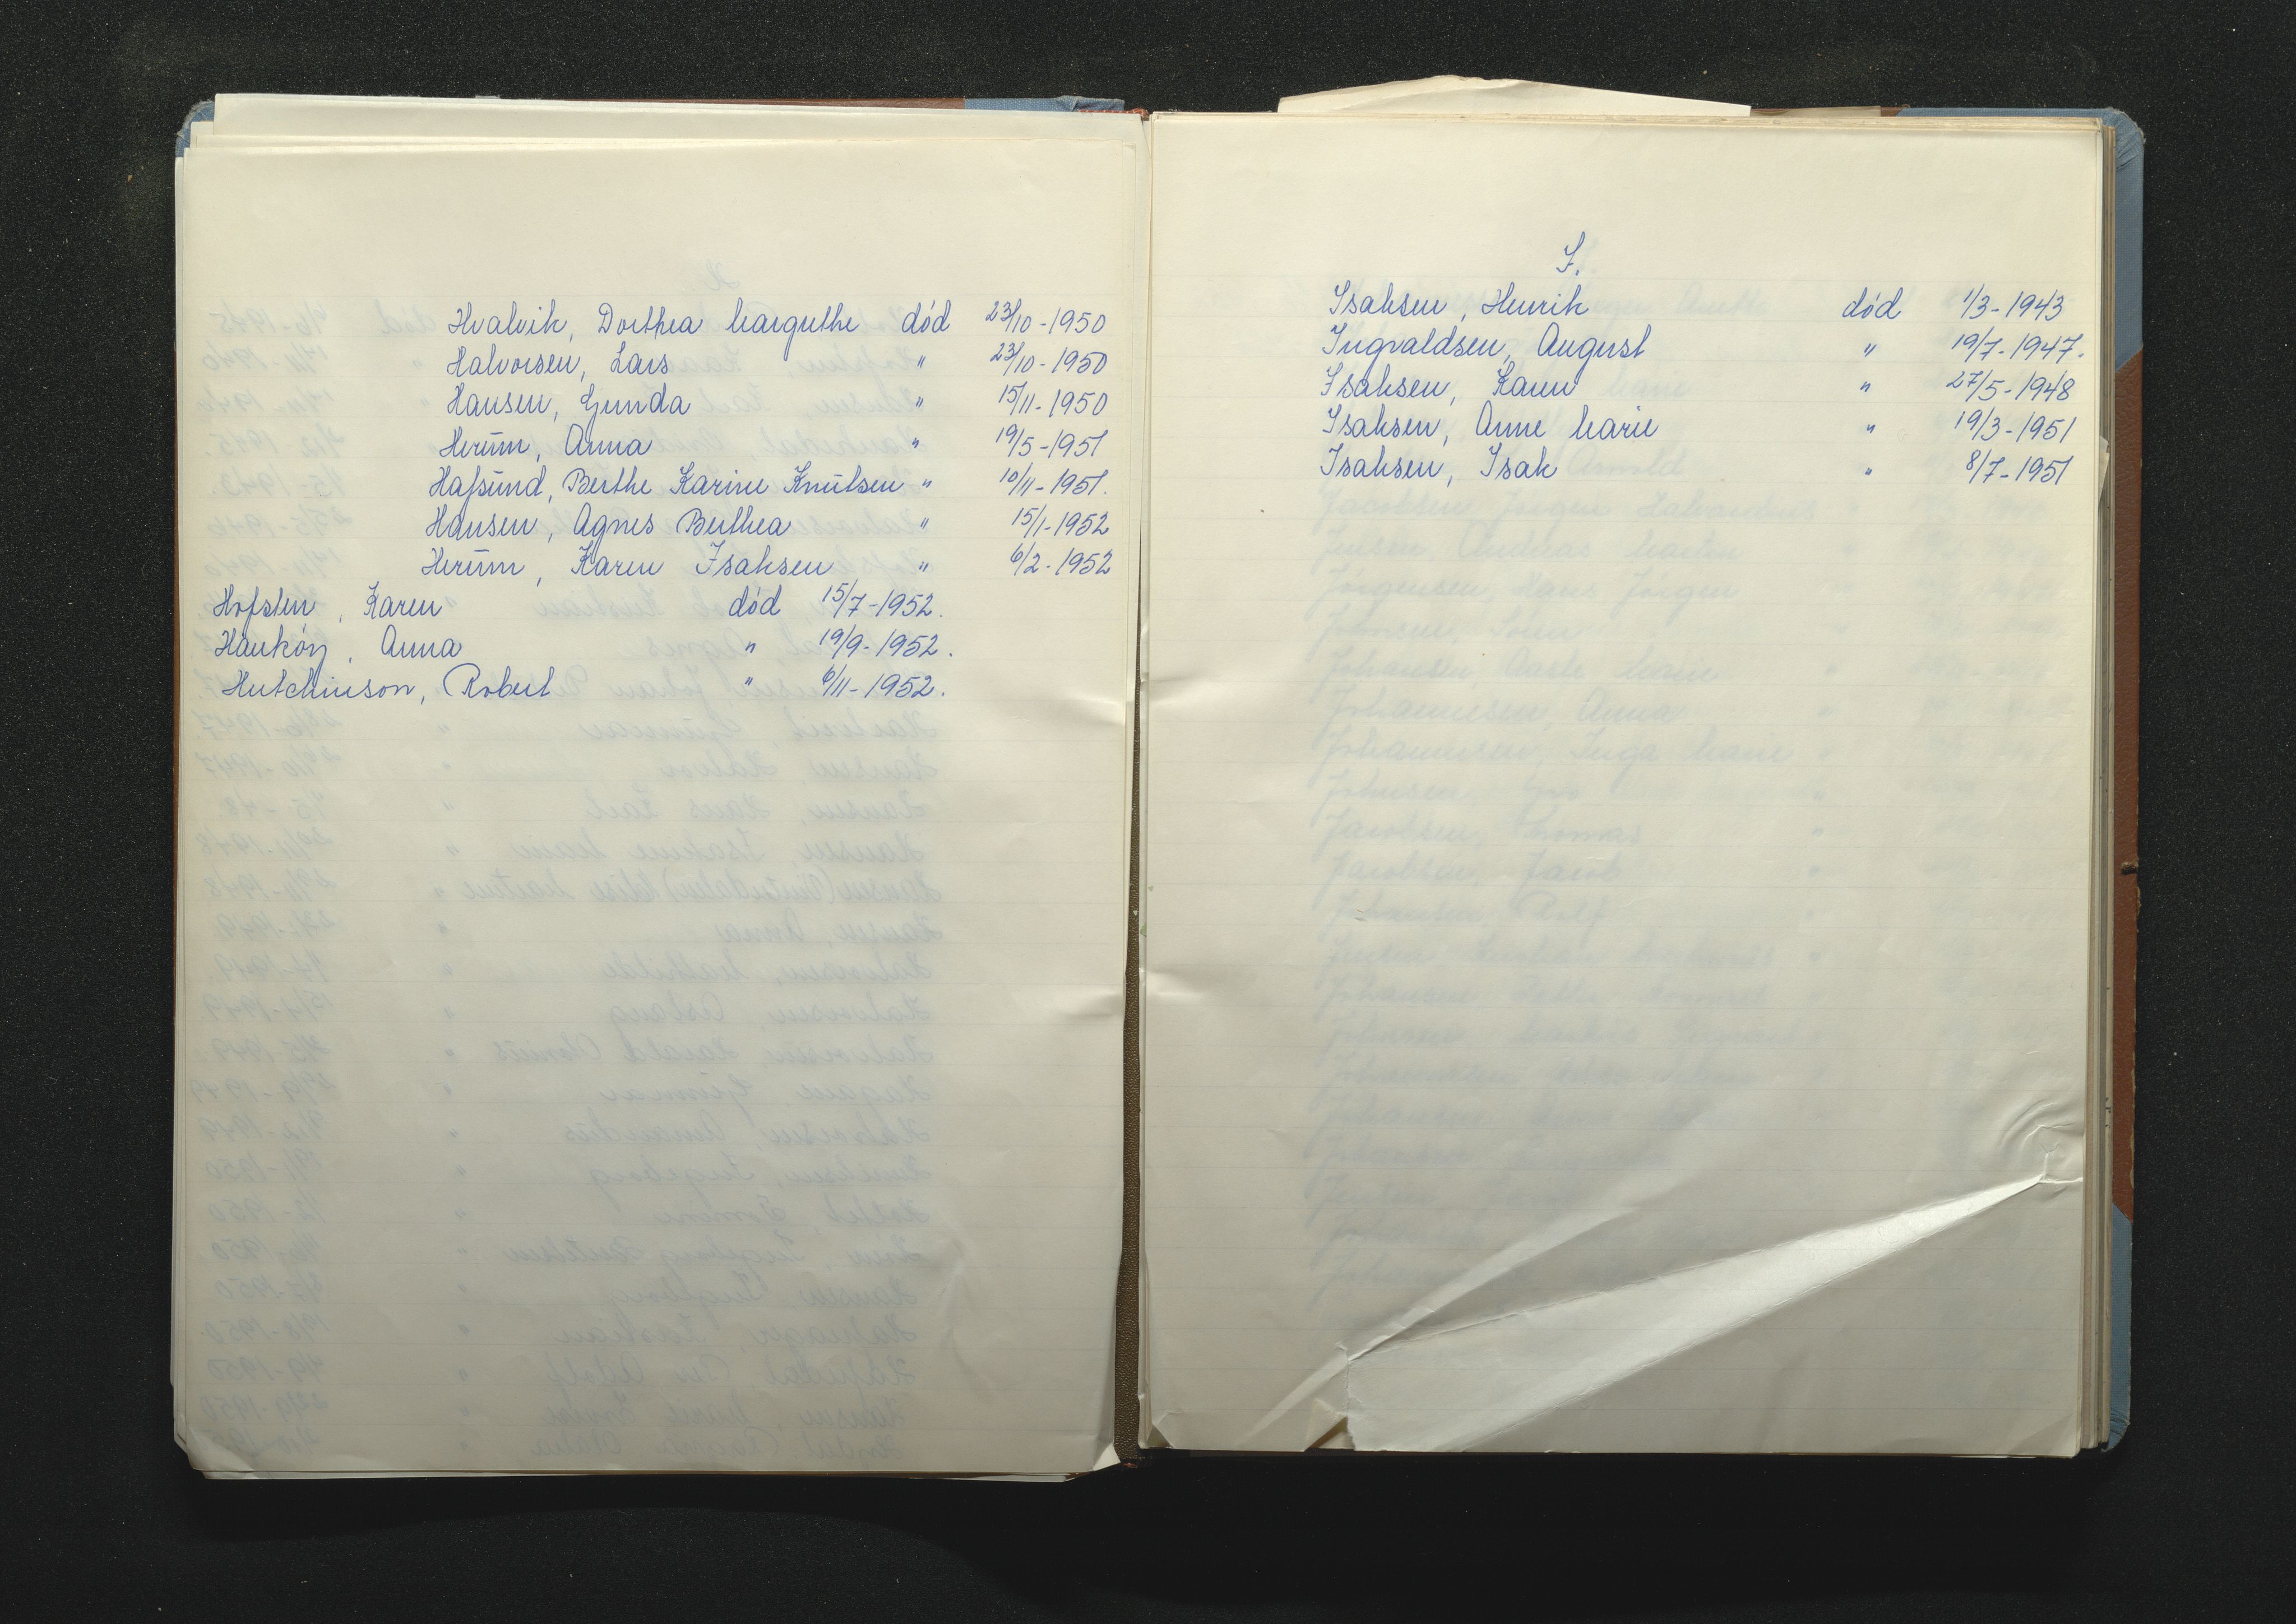 Hvalvik, Dorthea Margrethe død 23/10-1950
Halvorsen, Lars " 23/10-1950
Hansen, Gunda " 15/11-1950
Herum, Anna " 19/5-1951
Hafsund, Berthe Karine Knutsen " 10/11-1951.
Hansen, Agnes Berthea " 15/1-1952
Herum, Karen Isaksen " 6/2-1952
Hofsten, Karen død 15/7-1952.
Haukøy, Anna " 19/9-1952.
Hutchinson, Robert " 6/11-1952.
I.
Isaksen, Henrik død 1/3-1943
Ingvaldsen, August " 19/7-1947.
Isaksen, Karen " 27/5-1948
Isaksen, Anne Marie " 19/3-1951
Isaksen, Isak " 8/7-1951